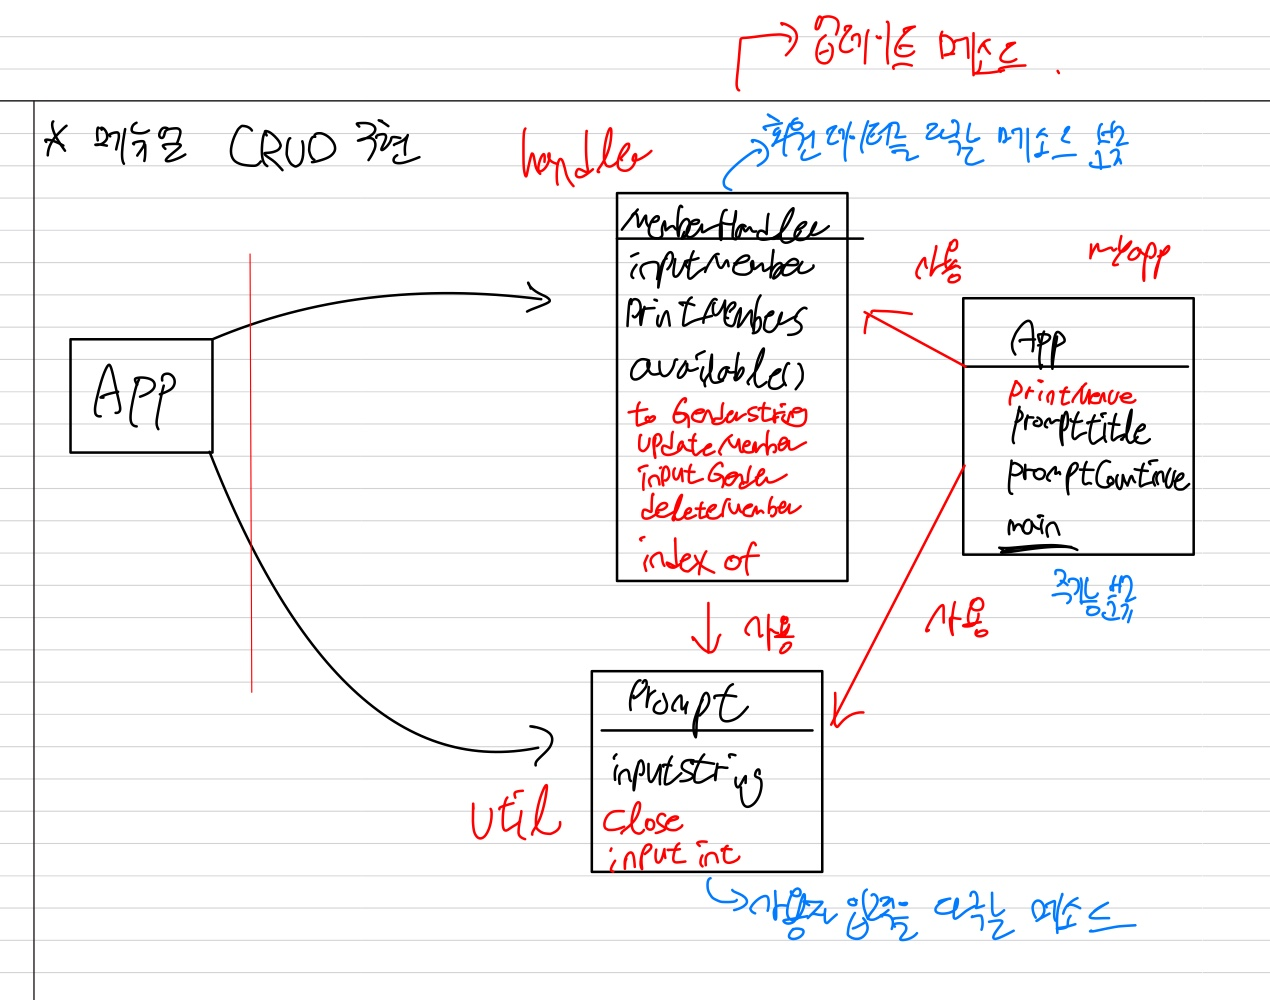 업데이트 메소드.
* 메뉴얼 CRUD 구현
handler
회원 데이터를 다루는 메소드 분류
MemberHandler
inputMember
printMembers
available()
to Genderstring
updateMember
inputGender
deleteMember
index of
사용
myapp
App
printMenue
prompttitle
promptContinue
main
기능분류
App
사용
사용
Prompt
inputstring
close
input int
util
사용자 입력을 다루는 메소드